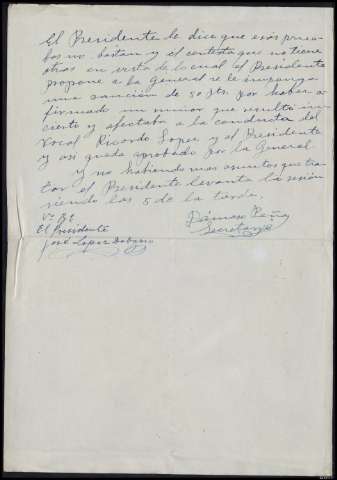 El Presidente le dice que esas prue
bas no bastan y el contesta que no tiene
otras en vista de lo cual el Presidente
propone a la General se le imponga
una sanción de 50 pts. por haber a
firmado un rumor que resultó in
cierto y afectaba a la conducta del
Vocal Ricardo Lopez y el Presidente
y asi queda aprobado por la General
y no habiendo mas asuntos que tra
tar el Presidente levanta la sesión
siendo las 5 de la tarde.
Vº Bº
El Presidente
José Lopez
Dámaso Peña
Secretario